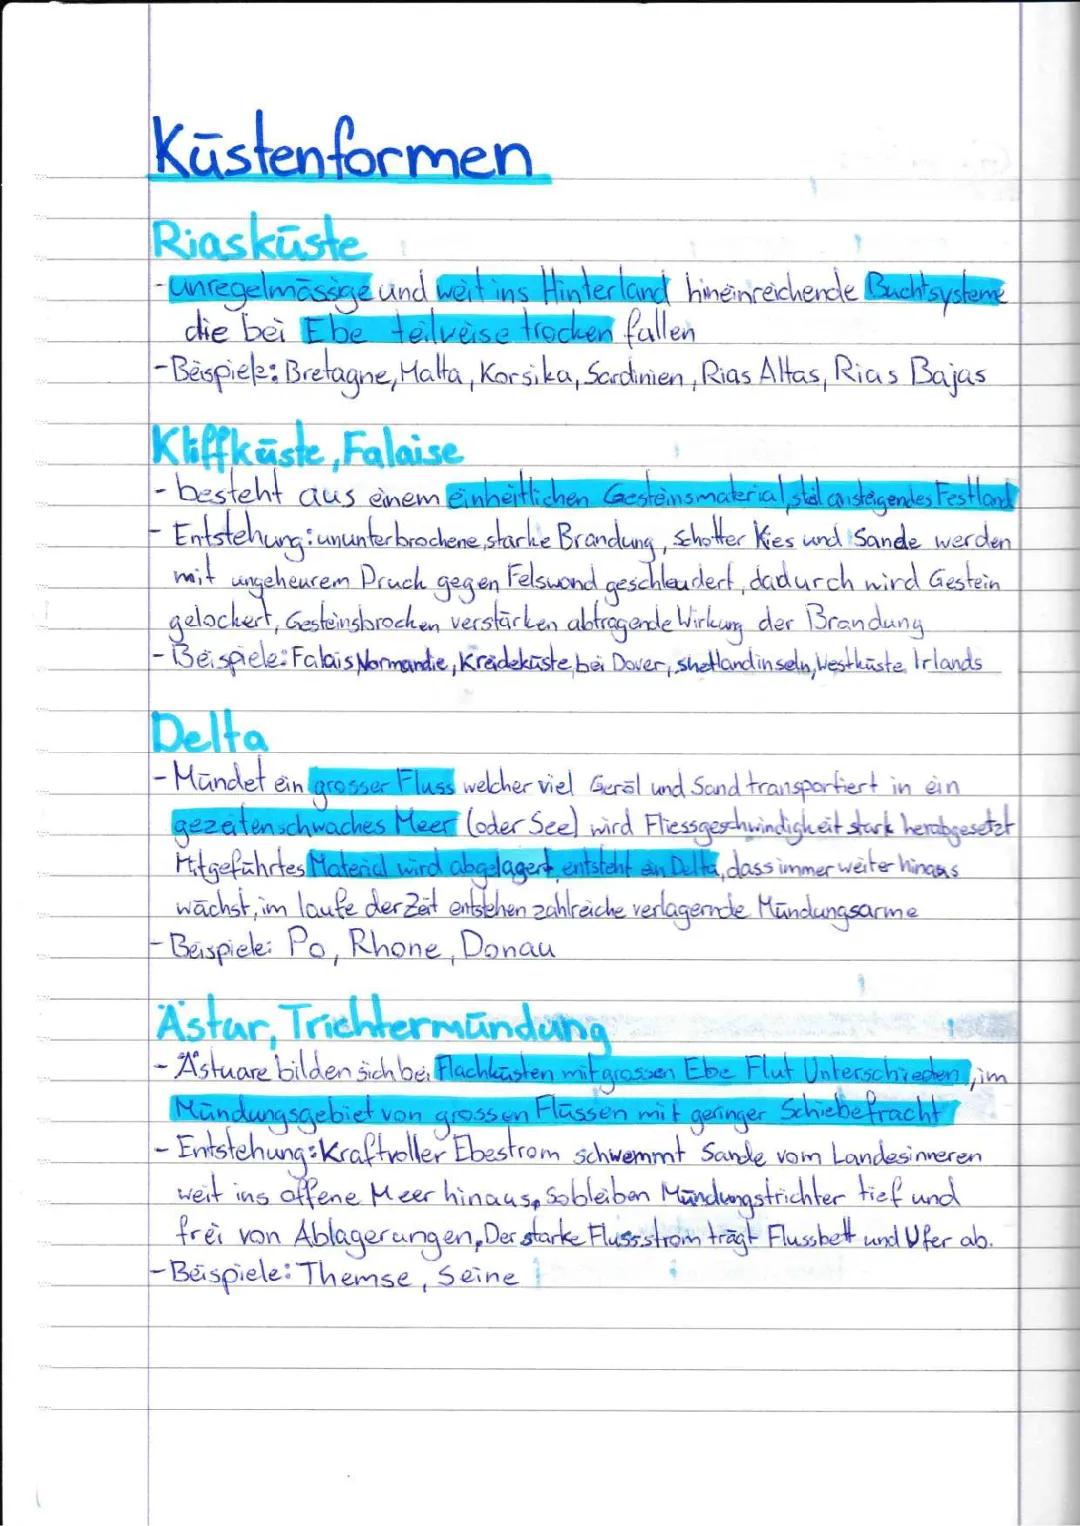 Küstenformen
Riasküste
- unregelmässige und weit ins Hinterland hineinreichende Buchtsysteme
die bei Ebe teilweise trocken fallen
- Beispiele: Bretagne, Malta, Korsika, Sardinien, Rias Altas, Rias Bajas
Kliffküste, Falaise
- besteht aus einem einheitlichen Gesteinsmaterial, steil ansteigendes Festland
- Entstehung: ununterbrochene, starke Brandung, Schotter Kies und Sande werden
mit ungeheurem Druck gegen Felswand geschleudert, dadurch wird Gestein
gelockert, Gesteinsbrocken verstärken abtragende Wirkung der Brandung
- Beispiele: Falais Normandie, Kreideküste bei Dover, shetlandinseln, Westküste Irlands
Delta
- Mündet ein grosser Fluss welcher viel Geröl und Sand transportiert in ein
gezeitenschwaches Meer (oder See) wird Fliessgeschwindigkeit stark herabgesetzt
Mitgeführtes Material wird abgelagert, entsteht ein Delta, dass immer weiter hinaus
wächst, im laufe der Zeit entstehen zahlreiche verlagernde Mündungsarme
- Beispiele: Po, Rhone, Donau
Ästuar, Trichtermündung
- Ästuare bilden sich bei Flachküsten mit grossen Ebe Flut Unterschieden, im
Mündungsgebiet von grossen Flüssen mit geringer Schiebefracht
- Entstehung: Kraftvoller Ebestrom schwemmt Sande vom Landesinneren
weit ins offene Meer hinaus, So bleiben Mündungstrichter tief und
frei von Ablagerungen, Der starke Flussstrom trägt Flussbett und Ufer ab.
- Beispiele: Themse, Seine